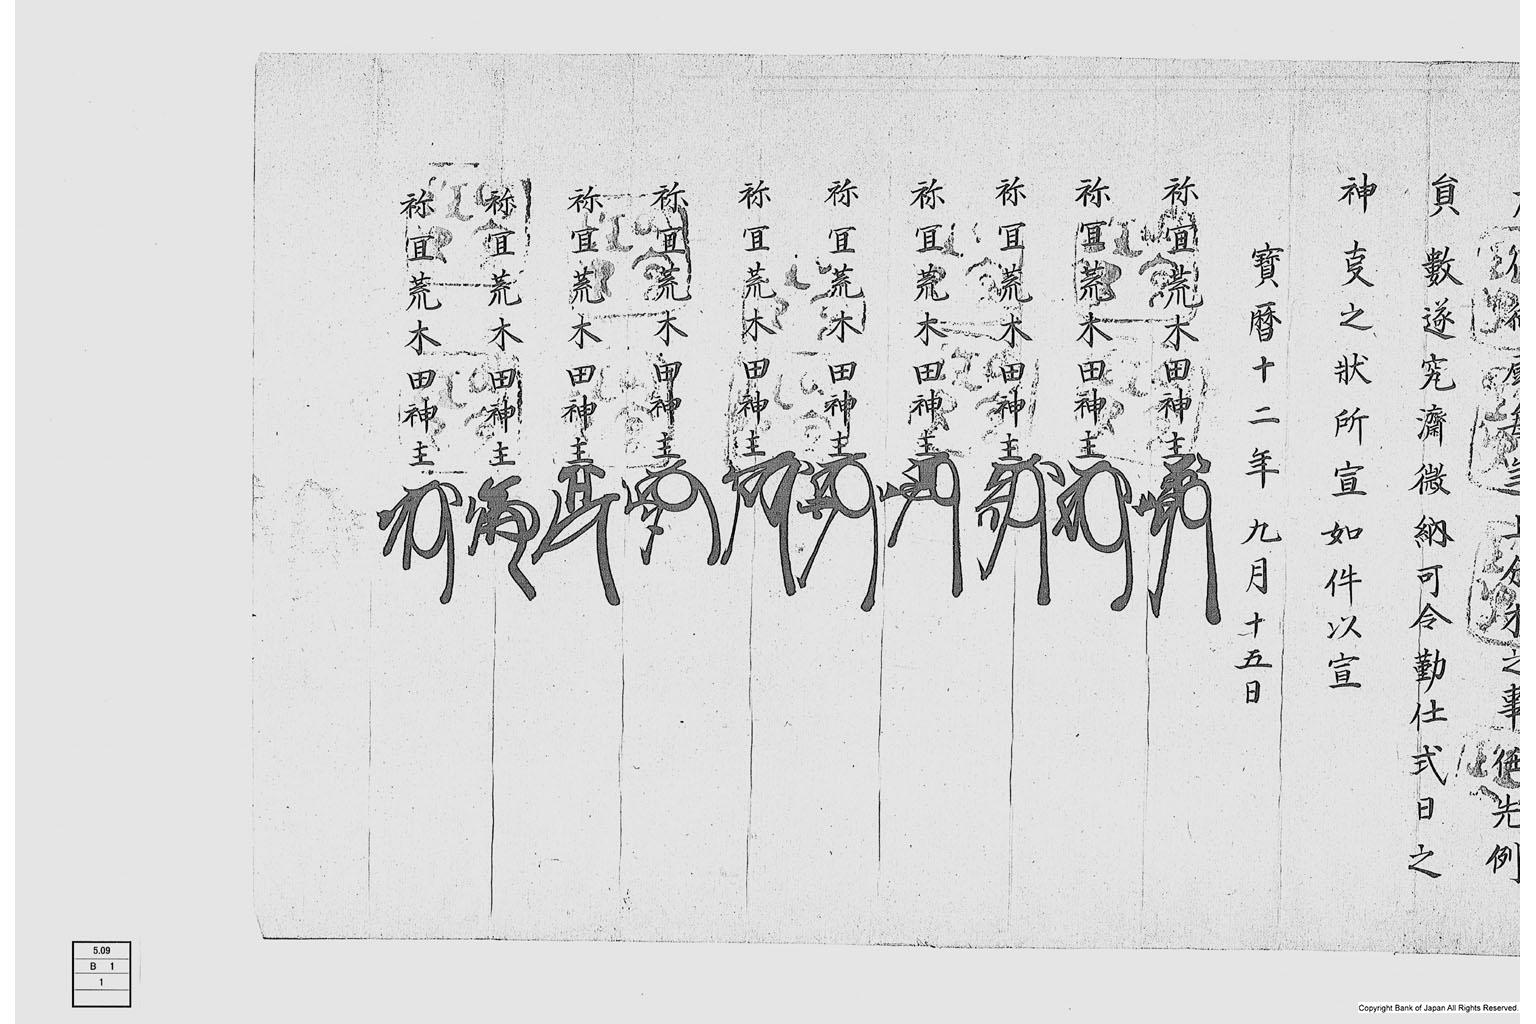 之事任先例
員數遂究濟微納可令勤仕式日之
神㕝之狀所宣如件以宣
寶曆十二年九月十五日
祢宜荒木田神主
祢宜荒木田神主
祢宜荒木田神主
祢宜荒木田神主
祢宜荒木田神主
祢宜荒木田神主
祢宜荒木田神主
祢宜荒木田神主
祢宜荒木田神主
祢宜荒木田神主
5.09
B 1
1
Copyright Bank of Japan All Rights Reserved.